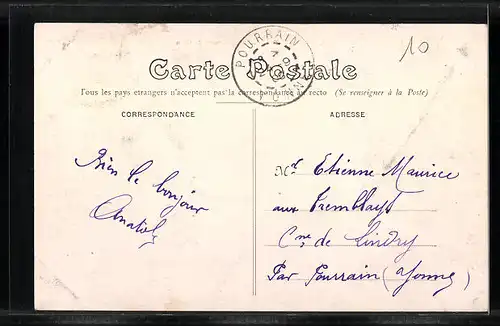 10
POURRAIN
YONNE
Carte Postale
Tous les pays étrangers n'acceptent pas la correspondance au recto (Se renseigner à la Poste)
CORRESPONDANCE
ADRESSE
Bien le bonjour
Anatole
Mr Etienne Maurice
aux Tremblays
Cne de Lindry
Par Pourrain (Yonne)